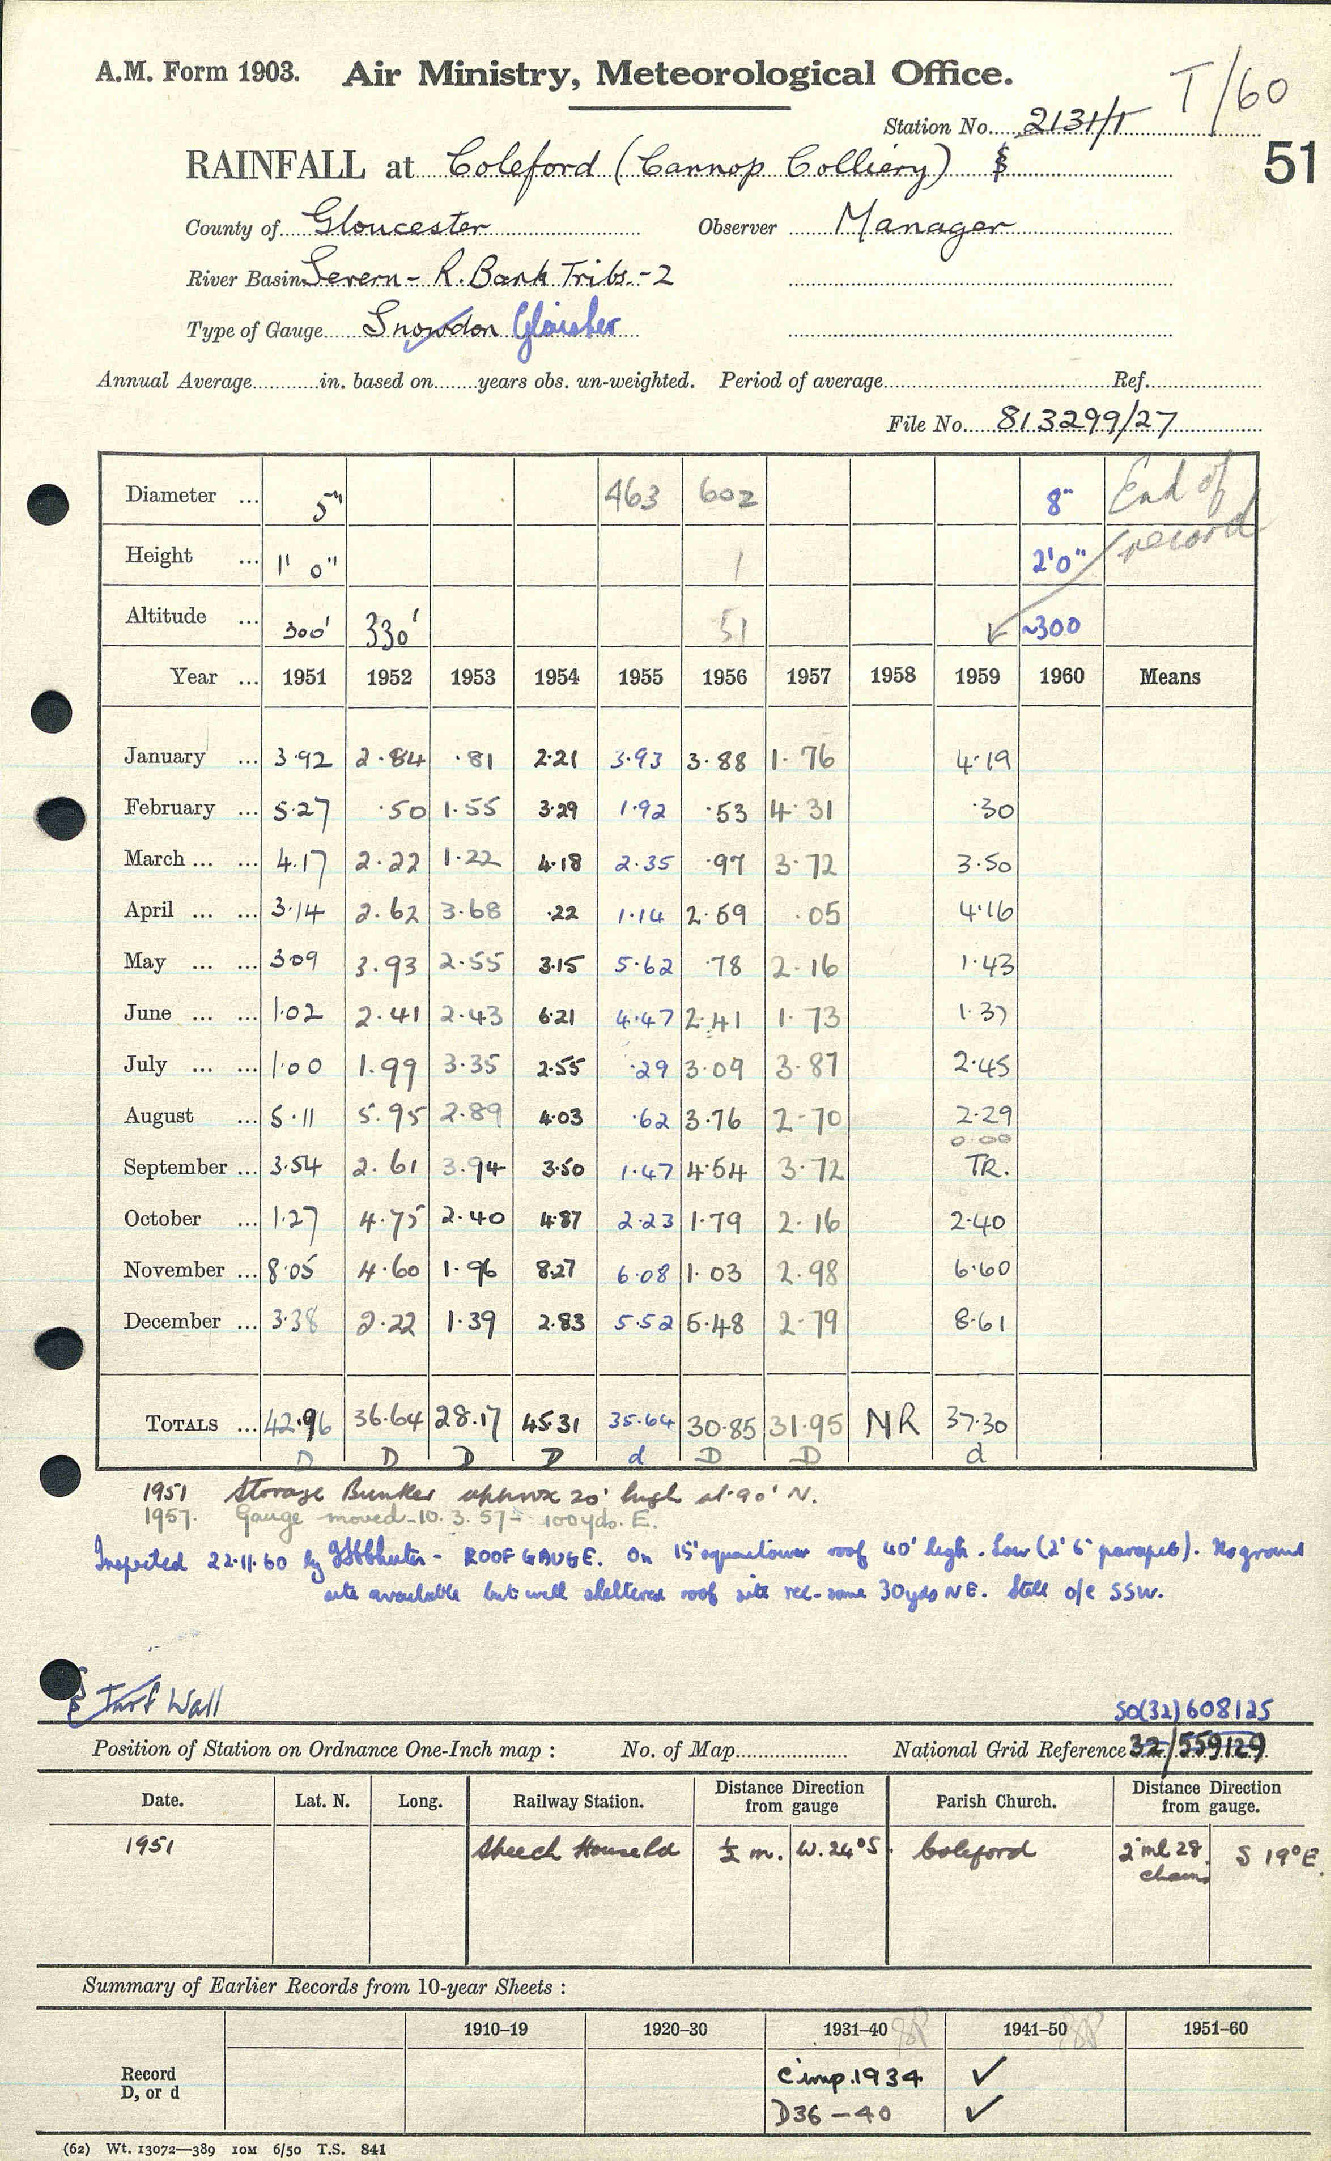 A.M. Form 1903. Air Ministry, Meteorological Office. T/60
Station No. 2131/1
51
RAINFALL at Coleford (Cannop Colliery) $
County of Gloucester Observer Manager
River Basin Severn - R. Bank Tribs. - 2
Type of Gauge Snowdon Glaisher
Annual Average in. based on years obs. un-weighted. Period of average Ref.
File No. 813299/27
Diameter ... 5" 463 602 8" End of record
Height ... 1' 0" 1 2'0"
Altitude ... 300' 330' 51 ~300
Year ... 1951 1952 1953 1954 1955 1956 1957 1958 1959 1960 Means
January ... 3.92 2.84 .81 2.21 3.93 3.88 1.76 4.19
February ... 5.27 .50 1.55 3.29 1.92 .53 4.31 .30
March ... ... 4.17 2.22 1.22 4.18 2.35 .97 3.72 3.50
April ... ... 3.14 2.62 3.68 .22 1.14 2.59 .05 4.16
May ... ... 3.09 3.93 2.55 3.15 5.62 .78 2.16 1.43
June ... ... 1.02 2.41 2.43 6.21 4.47 2.41 1.73 1.37
July ... ... 1.00 1.99 3.35 2.55 .29 3.09 3.87 2.45
August ... 5.11 5.95 2.89 4.03 .62 3.76 2.70 2.29
0.00
September ... 3.54 2.61 3.94 3.50 1.47 4.54 3.72 TR.
October ... 1.27 4.75 2.40 4.87 2.23 1.79 2.16 2.40
November ... 8.05 4.60 1.96 8.27 6.08 1.03 2.98 6.60
December ... 3.38 2.22 1.39 2.83 5.52 5.48 2.79 8.61
TOTALS ... 42.96 36.64 28.17 45.31 35.64 30.85 31.95 NR 37.30
D D D D d D D d
1951 Storage Bunker approx 20' high at 90' N.
1957. Gauge moved - 10.3.57 - 100yds. E.
Inspected 22.11.60 by - ROOF GAUGE. On 15' square tower roof 40' high. Low (2' 6" parapet). No ground
site available but well sheltered roof site rec - some 30yds NE. Still o/c SSW.
Turf Wall
SO(32)608125
Position of Station on Ordnance One-Inch map : No. of Map National Grid Reference 32/559129
Date. Lat. N. Long. Railway Station. Distance from gauge Direction Parish Church. Distance from gauge. Direction
1951 Speech House Rd ½ m. W.24°S. Coleford 2 ml 28 chains S 19° E.
Summary of Earlier Records from 10-year Sheets :
1910–19 1920–30 1931–40 1941–50 1951–60
Record C imp. 1934 ✓
D, or d D36 - 40 ✓
(62) Wt. 13072—389 10M 6/50 T.S. 841